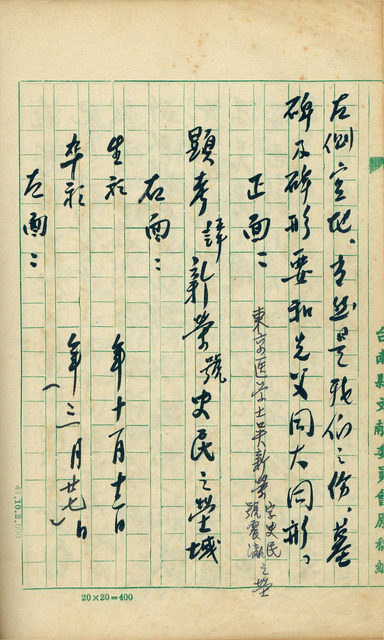 左側空地、當然是我们之份，墓
碑及碑形要和先父同大同形。
正面：
東京医学士吳新榮字史民號震瀛之塋
顯考諱新榮號史民之塋域
右面：
生於　年十一月十二日
卒於　年（三月廿七）日
左面：
台南縣文獻委員會原稿紙
20×20=400